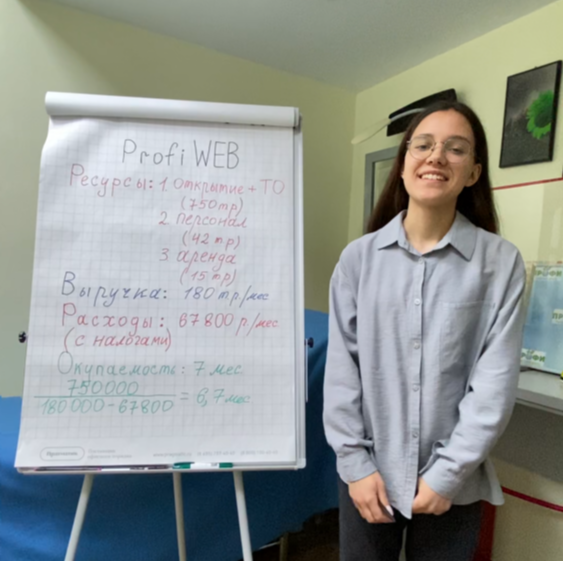 Profi WEB
Ресурсы: 1. Открытие + ТО
(750 тр)
2. персонал
(42 тр)
3. аренда
(15 тр)
Выручка: 180 тр./мес
Расходы: 67800 р./мес
(с налогами)
Окупаемость: 7 мес.
750000
180 000 - 67800 = 6,7 мес.